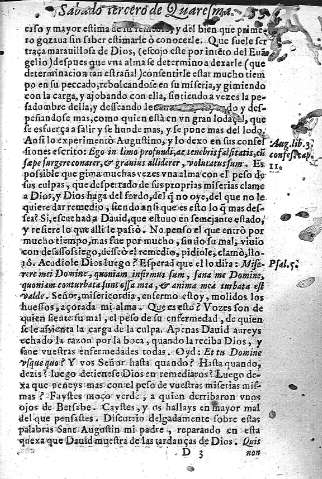 Sabado tercero de Quaresma. 
caso y mayor estima de su remedio, y del bien que prime-
ro gozaua sin saber estimarle ò conocerle. Que suele ser
traça marauillosa de Dios, (escojo este por intēto del Euā-
gelio) despues que vna alma se determino a dexarle (que
determinacion tan estraña!) consentirle estar mucho tiem-
po en su peccado, rebolcandose en su miseria, y gimiendo
con la carga, y ajobando con ella, sintiendo a vezes la pe-
sadombre della, y desseando y des-
peñandose mas, como quien està en vn gran lodaçal, que
se esfuerça a salir y se hunde mas, y se pone mas del lodo.
Assi lo experimentò Augustino, y lo dexo en sus confes-
siones escrito: Ego in limo profundi, ac tenebris falsitatis, cū
sæpe surgere conarer, & grauius alliderer, volutatus sum. Es
Aug. lib. 3.
confess. cap.
11.
possible que gima muchas vezes vna alma con el peso de
sus culpas, que despertado de sus proprias miserias clame
a Dios, y Dios haga del sordo, del q̄ no oye, del que no le
quiere dar remedio, siendo assi que es esto lo q̄ mas des-
sea? Si, escuchad a Dauid, que estuuo en semejante estado,
y refiere lo que alli le passò. No penso el que entrò por
mucho tiempo, mas fue por mucho, sintio su mal, viuio
con desassosiego, desseò el remedio, pidiole, clamò, llo-
rò. Acudiole Dios luego? Esperad que el lo dira: Mise-
rere mei Domine, quoniam infirmus sum, sana me Domine,
Psal. 5.
quoniam conturbata sunt ossa mea, & anima mea turbata est
valde. Señor, misericordia, enfermo estoy, molidos los
huessos, açorada mi alma. Que es esto? Vozes son de
quien siente su mal, el peso de su enfermedad, de quien
se le assienta la carga de la culpa. Apenas Dauid aureys
echado la razon por la boca, quando la reciba Dios, y
sane vuestras enfermedades todas. Oyd: Et tu Domine
vsquequo? Y vos Señor hasta quando? Hasta quando,
dezis? luego detienese Dios en remediaros? Luego de-
xa que venceys mas con el peso de vuestras miserias mis-
mas? Fuystes moço verde, a quien derribaron vnos
ojos de Betsabe. Caystes, y os hallays en mayor mal
del que pensastes. Discurrio delgadamente sobre estas
palabras Sant Augustin mi padre, reparando en esta
quexa que Dauid muestra de las tardanças de Dios. Quis
D 3
non